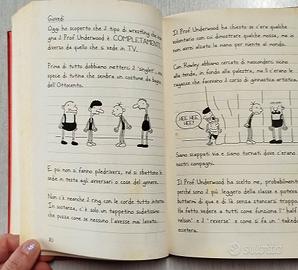 Giovedì
Oggi ho scoperto che il tipo di wrestling che inse-
gna il Prof Underwood è COMPLETAMENTE
diverso da quello che si vede in TV.
Prima di tutto dobbiamo metterci il "singlet", una
specie di tutina che sembra un costume da bagno
dell'Ottocento.
E poi non si fanno piledrivers, né si sbattono le
sedie in testa agli avversari o cose del genere.
Non c'è neanche il ring con le corde tutto intorno.
In sostanza, c'è solo un tappetino sudatissimo
che puzza come se nessuno l'avesse mai lavato.
80
Il Prof Underwood ha chiesto se c'era qualche
volontario con cui dimostrare qualche mossa, ma io
non avrei alzato la mano per niente al mondo.
Con Rowley abbiamo cercato di nasconderci vicino
alla tenda, in fondo alla palestra, ma lì c'erano le
ragazze che facevano il corso di ginnastica artistica.
HEE HEE
HEE!
Siamo scappati via e siamo tornati dove c'erano i
nostri compagni.
Il Prof Underwood ha scelto me, probabilmente
perché sono il più leggero della classe e poteva
buttarmi di qua e di là senza stancarsi troppo.
Ha fatto vedere a tutti come funziona l'"half
nelson" e il "reverse" e come si fa un "takedown"
eccetera.
subito.it